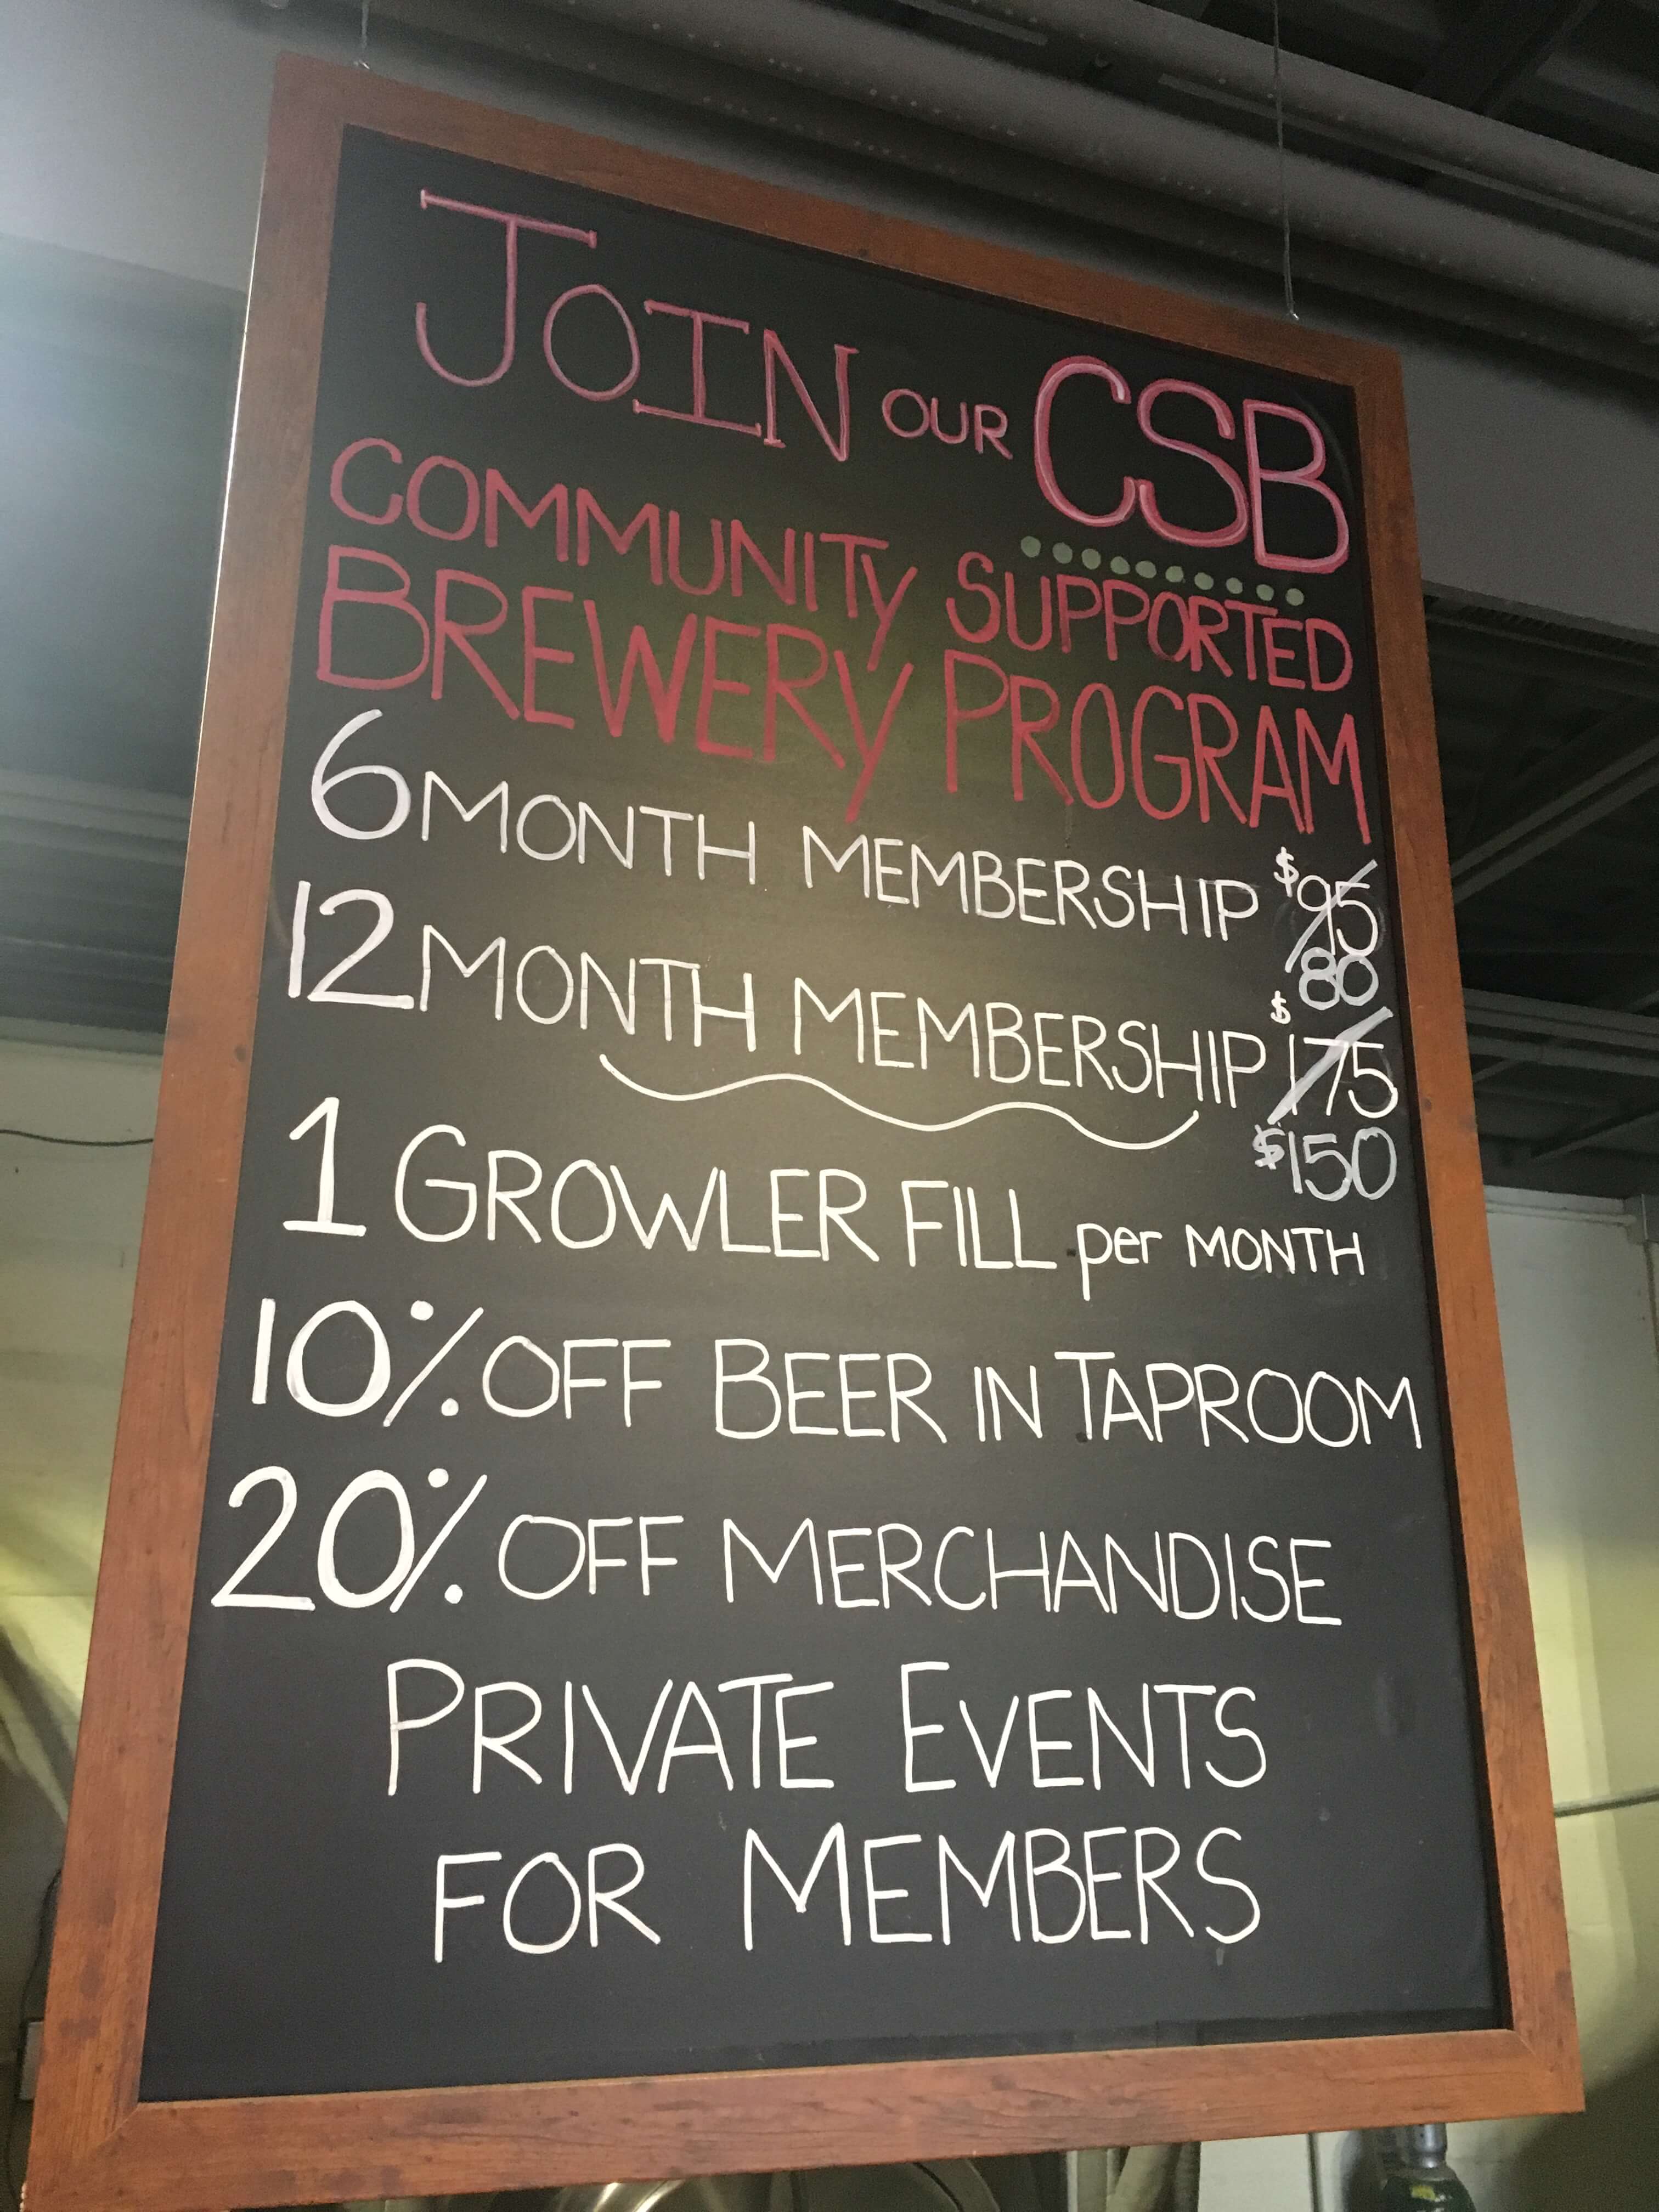 JOIN OUR CSB
COMMUNITY SUPPORTED
BREWERY PROGRAM
6 MONTH MEMBERSHIP $95
80
12 MONTH MEMBERSHIP $175
$150
1 GROWLER FILL per MONTH
10% OFF BEER IN TAPROOM
20% OFF MERCHANDISE
PRIVATE EVENTS
FOR MEMBERS